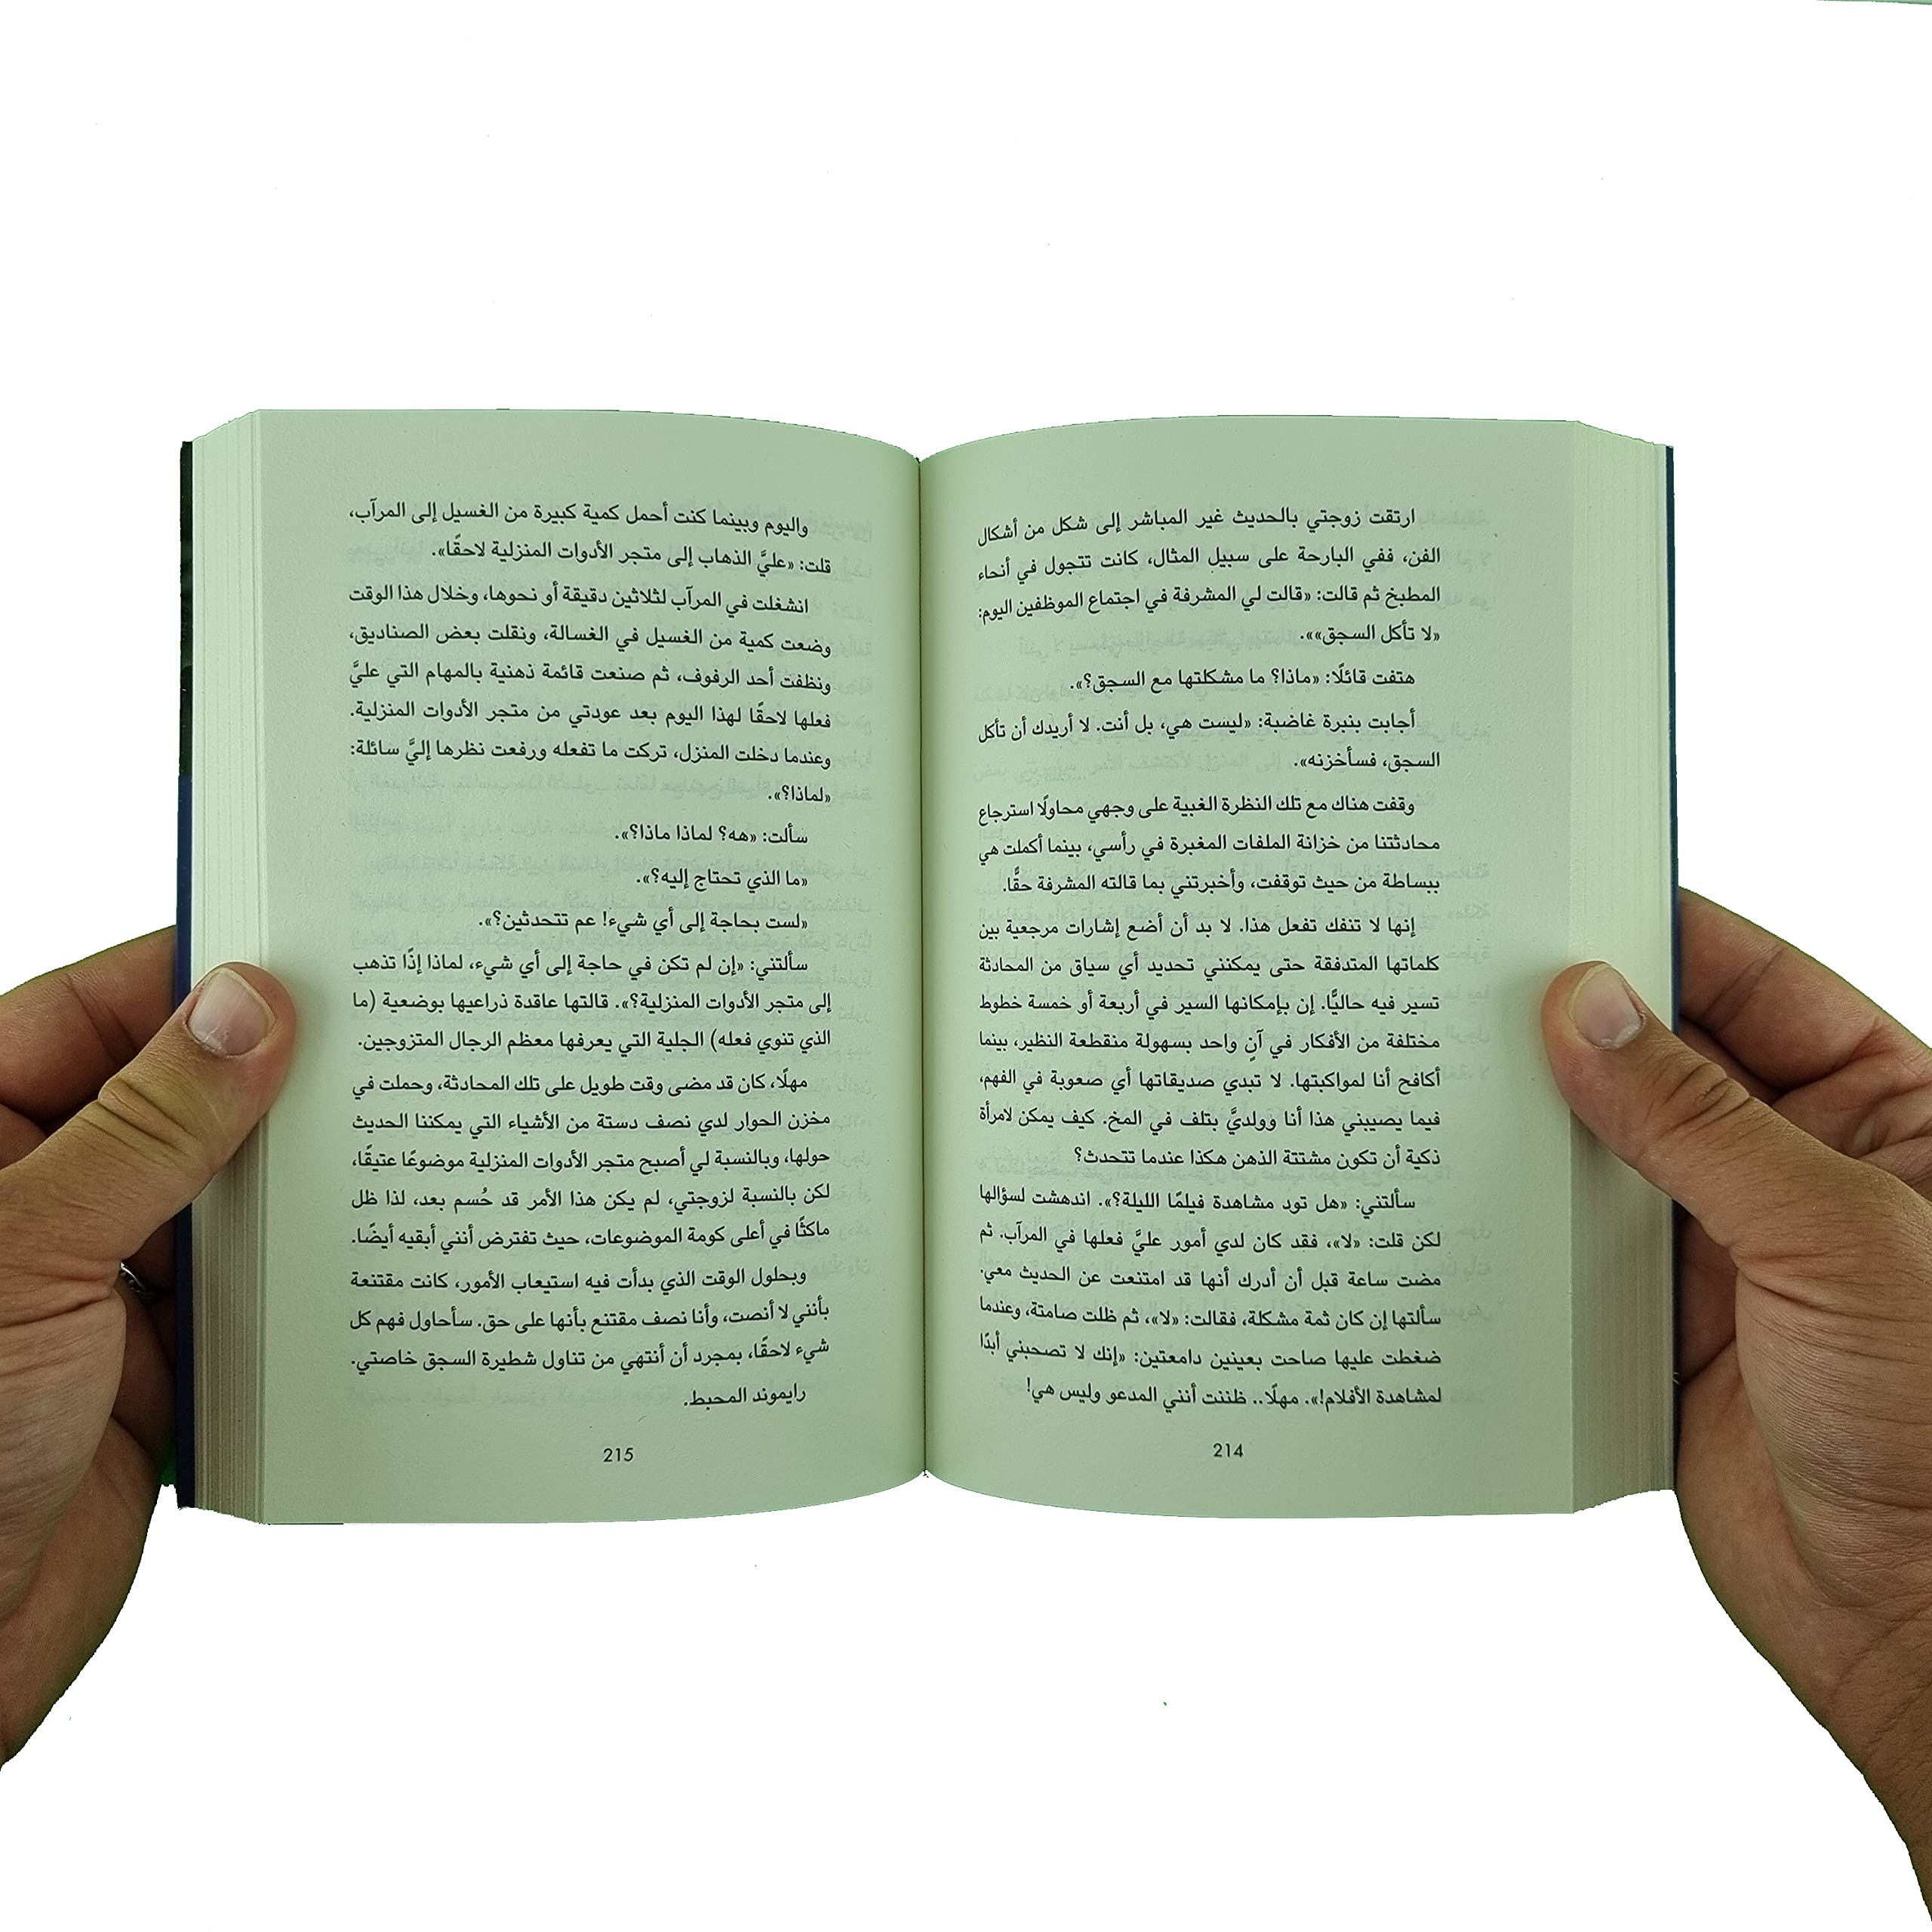 ارتقت زوجتي بالحديث غير المباشر إلى شكل من أشكال
الفن، ففي البارحة على سبيل المثال، كانت تتجول في أنحاء
المطبخ ثم قالت: «قالت لي المشرفة في اجتماع الموظفين اليوم:
«لا تأكل السجق»».
هتفت قائلًا: «ماذا؟ ما مشكلتها مع السجق؟».
أجابت بنبرة غاضبة: «ليست هي، بل أنت. لا أريدك أن تأكل
السجق، فسأخزنه».
وقفت هناك مع تلك النظرة الغبية على وجهي محاولًا استرجاع
محادثتنا من خزانة الملفات المغبرة في رأسي، بينما أكملت هي
ببساطة من حيث توقفت، وأخبرتني بما قالته المشرفة حقًّا.
إنها لا تنفك تفعل هذا. لا بد أن أضع إشارات مرجعية بين
كلماتها المتدفقة حتى يمكنني تحديد أي سياق من المحادثة
تسير فيه حاليًّا. إن بإمكانها السير في أربعة أو خمسة خطوط
مختلفة من الأفكار في آنٍ واحد بسهولة منقطعة النظير، بينما
أكافح أنا لمواكبتها. لا تبدي صديقاتها أي صعوبة في الفهم،
فيما يصيبني هذا أنا وولديَّ بتلف في المخ. كيف يمكن لامرأة
ذكية أن تكون مشتتة الذهن هكذا عندما تتحدث؟
سألتني: «هل تود مشاهدة فيلمًا الليلة؟». اندهشت لسؤالها
لكن قلت: «لا»، فقد كان لدي أمور عليَّ فعلها في المرآب. ثم
مضت ساعة قبل أن أدرك أنها قد امتنعت عن الحديث معي.
سألتها إن كان ثمة مشكلة، فقالت: «لا»، ثم ظلت صامتة، وعندما
ضغطت عليها صاحت بعينين دامعتين: «إنك لا تصحبني أبدًا
لمشاهدة الأفلام!». مهلًا.. ظننت أنني المدعو وليس هي!
214
واليوم وبينما كنت أحمل كمية كبيرة من الغسيل إلى المرآب،
قلت: «عليَّ الذهاب إلى متجر الأدوات المنزلية لاحقًا».
انشغلت في المرآب لثلاثين دقيقة أو نحوها، وخلال هذا الوقت
وضعت كمية من الغسيل في الغسالة، ونقلت بعض الصناديق،
ونظفت أحد الرفوف، ثم صنعت قائمة ذهنية بالمهام التي عليَّ
فعلها لاحقًا لهذا اليوم بعد عودتي من متجر الأدوات المنزلية.
وعندما دخلت المنزل، تركت ما تفعله ورفعت نظرها إليَّ سائلة:
«لماذا؟».
سألت: «هه؟ لماذا ماذا؟».
«ما الذي تحتاج إليه؟».
«لست بحاجة إلى أي شيء! عم تتحدثين؟».
سألتني: «إن لم تكن في حاجة إلى أي شيء، لماذا إذًا تذهب
إلى متجر الأدوات المنزلية؟». قالتها عاقدة ذراعيها بوضعية (ما
الذي تنوي فعله) الجلية التي يعرفها معظم الرجال المتزوجين.
مهلًا، كان قد مضى وقت طويل على تلك المحادثة، وحملت في
مخزن الحوار لدي نصف دستة من الأشياء التي يمكننا الحديث
حولها، وبالنسبة لي أصبح متجر الأدوات المنزلية موضوعًا عتيقًا،
لكن بالنسبة لزوجتي، لم يكن هذا الأمر قد حُسم بعد، لذا ظل
ماكثًا في أعلى كومة الموضوعات، حيث تفترض أنني أبقيه أيضًا.
وبحلول الوقت الذي بدأت فيه استيعاب الأمور، كانت مقتنعة
بأنني لا أنصت، وأنا نصف مقتنع بأنها على حق. سأحاول فهم كل
شيء لاحقًا، بمجرد أن أنتهي من تناول شطيرة السجق خاصتي.
رايموند المحبط.
215